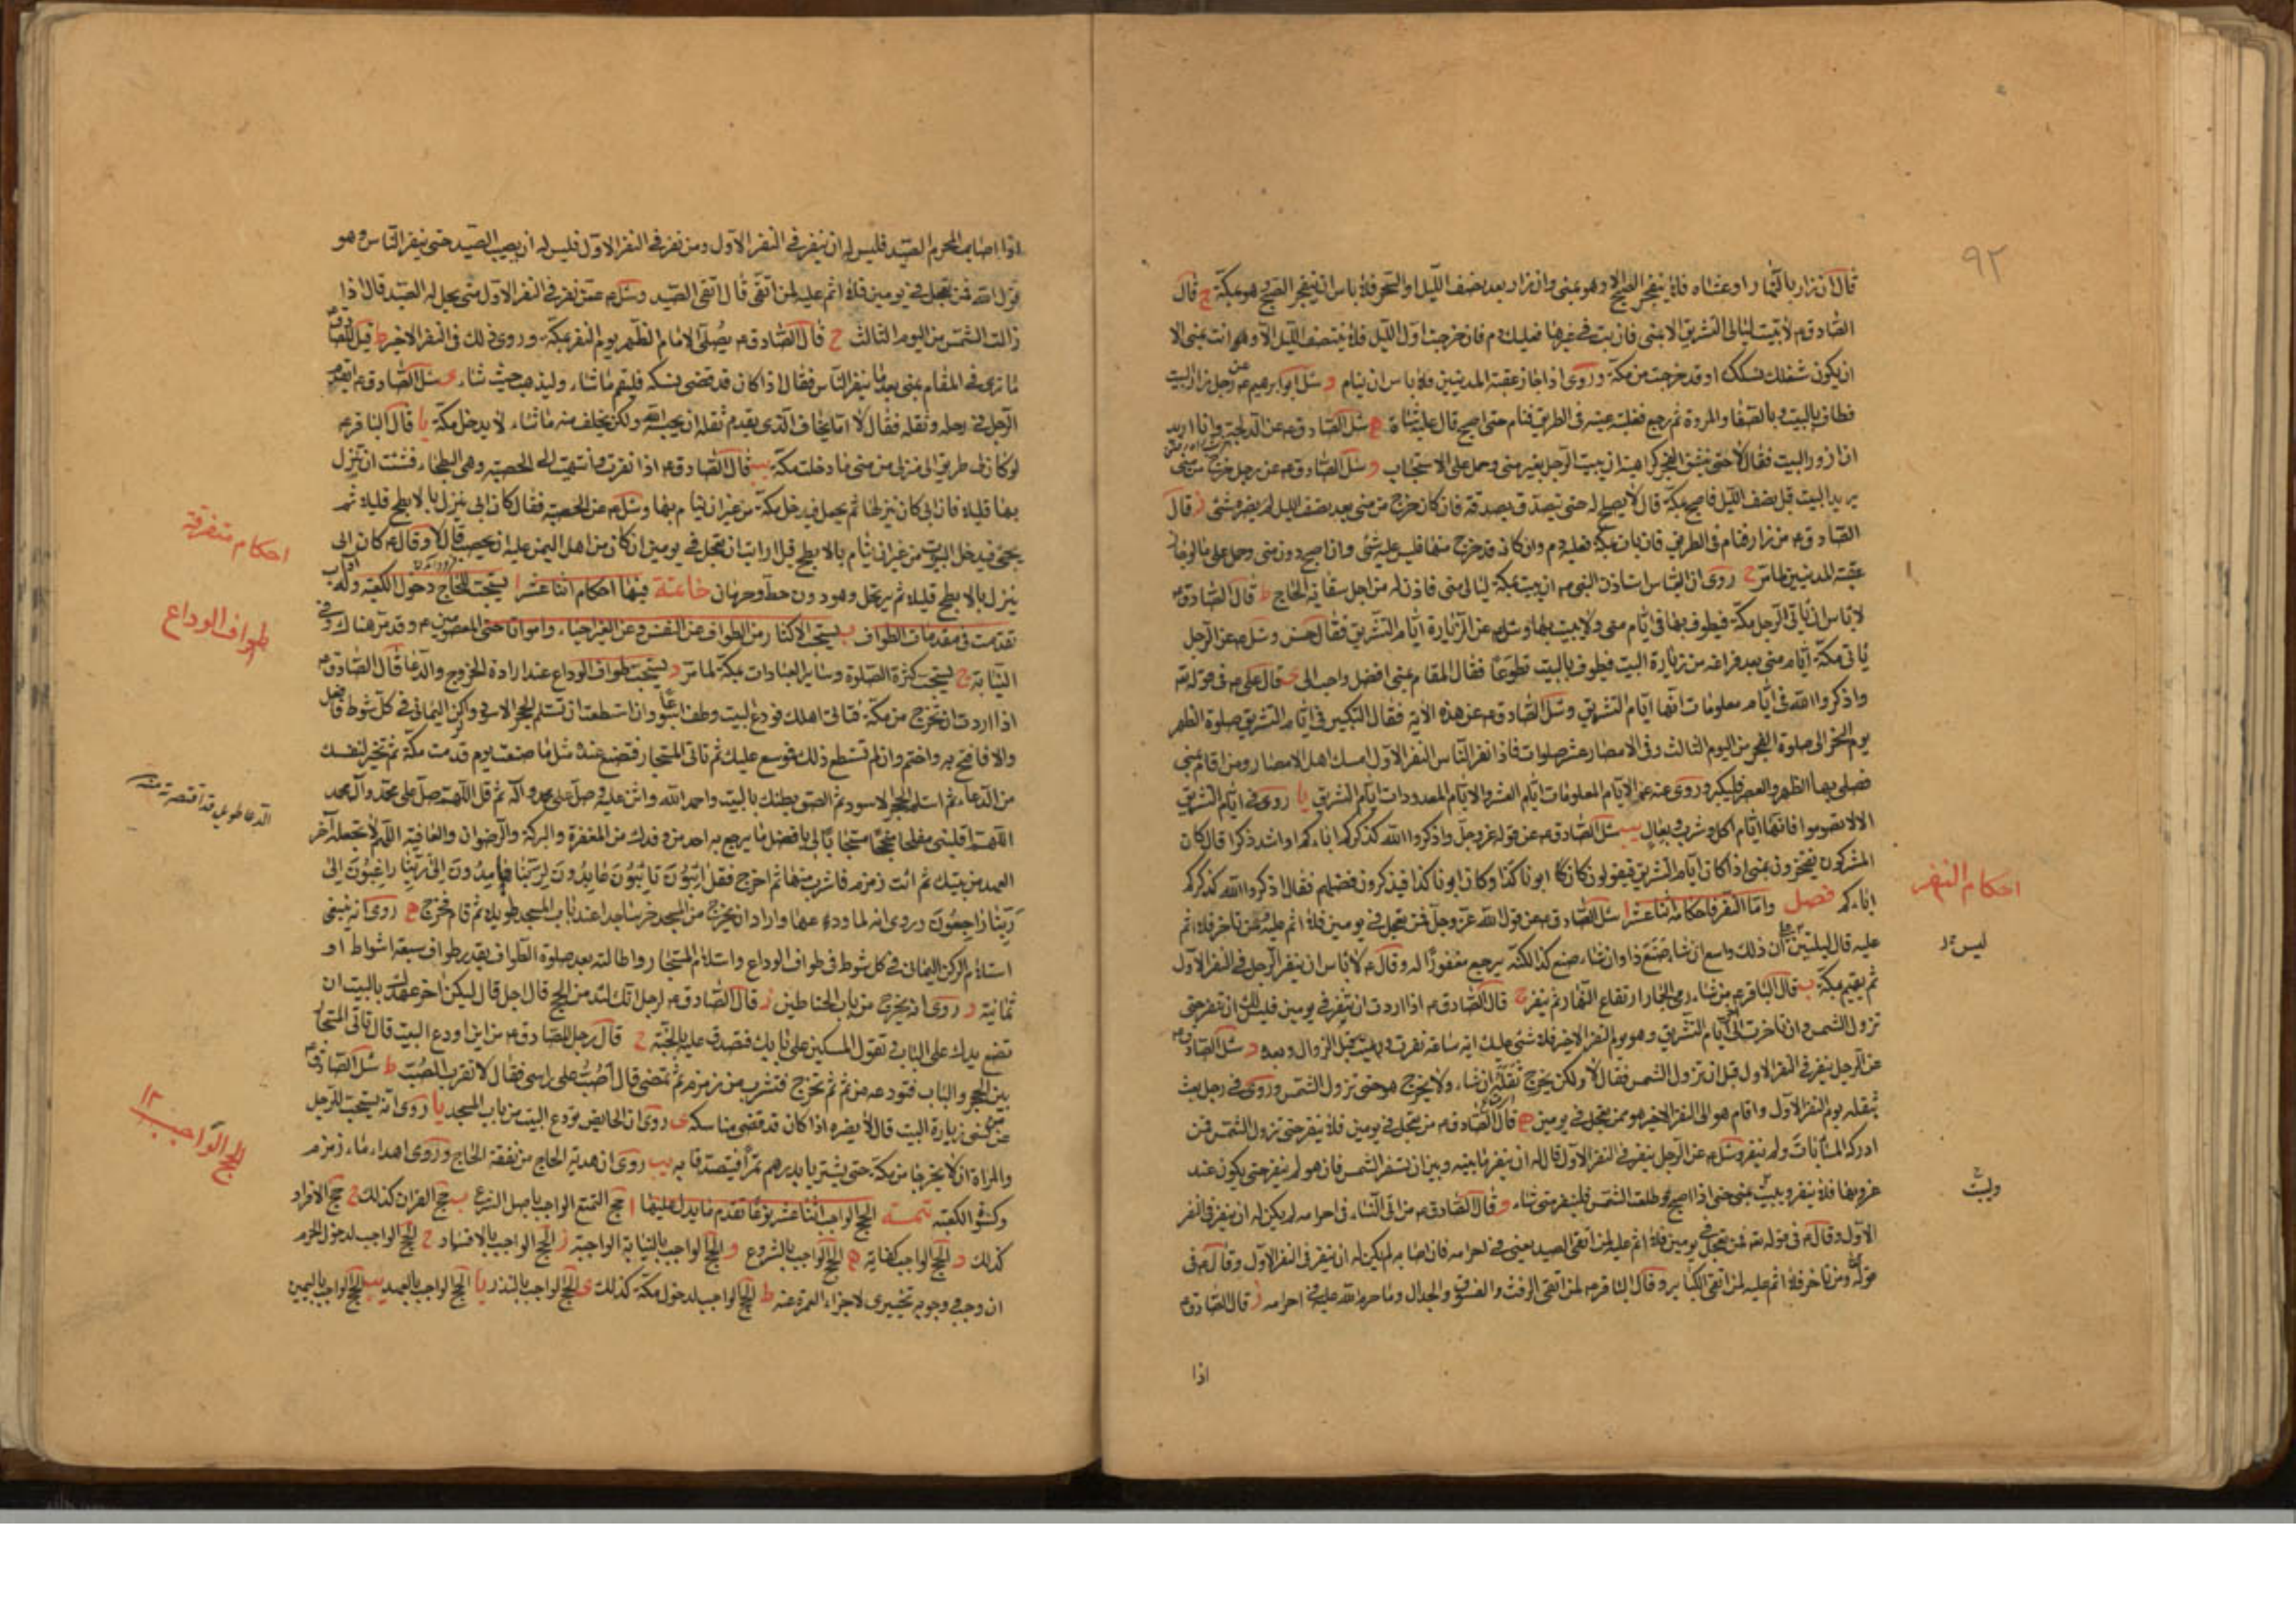 ٩٢
قال ان زار بالنهار او عشاء فلا ينفجر الصبح الا وهو بمنى وان زار بعد نصف الليل او السحر فلا باس ان ينفجر الصبح وهو بمكة ج قال
الصادق ع لا تبت ليالى التشريق الا بمنى فان بت فى غيرها فعليك دم فان خرجت اول الليل فلا ينتصف الليل الا وانت بمنى الا
ان يكون شغلك نسكك او قد خرجت من مكة وروى اذا جاز عقبة المدنيين فلا باس ان ينام د سئل ابو ابرهيم ع عن رجل زار البيت
فطاف بالبيت وبالصفا والمروة ثم رجع فغلبته عينه فى الطريق فنام حتى اصبح قال عليه شاة ه سئل الصادق ع عن الدلجة وانا اريد
ان ازور البيت فقال لا حتى ينشق الفجر كراهية ان يبيت الرجل بغير منى وحمل على الاستحباب و سئل الصادق ع عن رجل خرج من منى
يريد البيت قبل نصف الليل فاصبح بمكة قال لا يصلح له حتى يتصدق بصدقة فان كان خرج من منى بعد نصف الليل لم يضره شئ ز قال
الصادق ع من زار فنام فى الطريق فان بات بمكة فعليه دم وان كان قد خرج منها فليس عليه شئ وان اصبح دون منى وحمل على ما لو جاز
عقبة المدنيين لما مر ح روى ان العباس استاذن النبى ص ان يبيت بمكة ليالى منى فاذن له من اجل سقاية الحاج ط قال الصادق ع
لا باس ان ياتى الرجل مكة فيطوف بها فى ايام منى ولا يبيت بها وسئل ع عن الزيارة ايام التشريق فقال حسن وسئل ع عن الرجل
ياتى مكة ايام منى بعد فراغه من زيارة البيت فيطوف بالبيت تطوعا فقال المقام بمنى افضل واحب الى ى قال على ع فى قوله تعالى
واذكروا الله فى ايام معلومات انها ايام التشريق وسئل الصادق ع عن هذه الاية فقال التكبير فى ايام التشريق صلوة الظهر
يوم النحر الى صلوة الفجر من اليوم الثالث وفى الامصار عشر صلوات فاذا نفر الناس النفر الاول امسك اهل الامصار ومن اقام بمنى
فصلى بها الظهر والعصر فليكبر وروى عنه ع الايام المعلومات ايام العشر والايام المعدودات ايام التشريق يا روى فى ايام التشريق
الا لا تصوموا فانها ايام اكل وشرب وبعال يب سئل الصادق ع عن قوله عز وجل واذكروا الله كذكركم اباءكم او اشد ذكرا قال كان
المشركون يفتخرون بمنى اذا كان ايام التشريق فيقولون كان ابونا كذا وكان ابونا كذا فيذكرون فضلهم فقال اذكروا الله كذكركم
اباءكم فصل واما النفر فاحكامه اثنا عشر ا سئل الصادق ع عن قول الله عز وجل فمن تعجل فى يومين فلا اثم عليه ومن تاخر فلا اثم
عليه قال ليس ان ذلك واسع ان شاء صنع ذا وان شاء صنع كذا لكنه يرجع مغفورا له وقال ع لا باس ان ينفر الرجل فى النفر الاول
ثم يقيم بمكة ب قال الباقر ع من شاء رمى الجمار ارتفاع النهار ثم ينفر ج قال الصادق ع اذا اردت ان تنفر فى يومين فليس لك ان تنفر حتى
تزول الشمس وان تاخرت الى اخر ايام التشريق وهو يوم النفر الاخير فلا شئ عليك اية ساعة نفرت ورميت قبل الزوال وبعده د سئل الصادق ع
عن الرجل ينفر فى النفر الاول قبل ان تزول الشمس فقال لا ولكن يخرج ثقله ان شاء ولا يخرج هو حتى تزول الشمس وروى فى رجل بعث
بثقله يوم النفر الاول واقام هو الى النفر الاخير هو ممن تعجل فى يومين ه قال الصادق ع من تعجل فى يومين فلا ينفر حتى تزول الشمس فمن
ادركه المساء بات ولم ينفر وسئل ع عن الرجل ينفر فى النفر الاول قال له ان ينفر ما بينه وبين ان تسفر الشمس فان هو لم ينفر حتى يكون عند
غروبها فلا ينفر ويبيت بمنى حتى اذا اصبح وطلعت الشمس فلينفر متى شاء و قال الصادق ع من اتى النساء فى احرامه لم يكن له ان ينفر فى النفر
الاول وقال ع فى قوله تعالى فمن تعجل فى يومين فلا اثم عليه لمن اتقى الصيد يعنى فى احرامه فان اصابه لم يكن له ان ينفر فى النفر الاول وقال ع فى
قوله ومن تاخر فلا اثم عليه لمن اتقى الكبائر وقال الباقر ع لمن اتقى الرفث والفسوق والجدال وما حرم الله عليه فى احرامه ز قال الصادق ع
اذا
احكام النفر
وليبت
اذا اصاب المحرم الصيد فليس له ان ينفر فى النفر الاول ومن نفر فى النفر الاول فليس له ان يصيب الصيد حتى ينفر الناس وهو
قول الله فمن تعجل فى يومين فلا اثم عليه لمن اتقى قال اتقى الصيد وسئل ع عمن نفر فى النفر الاول متى يحل له الصيد قال اذا
زالت الشمس من اليوم الثالث ح قال الصادق ع يصلى الامام الظهر يوم النفر بمكة وروى ذلك فى النفر الاخير ط قيل للصادق ع
ما ترى فى المقام بمنى بعد ما ينفر الناس فقال اذا كان قد قضى نسكه فليقم ما شاء وليذهب حيث شاء ى سئل الصادق ع ايقدم
الرجل رحله وثقله فقال لا اما يخاف الذى يقدم ثقله ان يحبسه الله ولكن يخلف منه ما شاء لا يدخل مكة يا قال الباقر ع
لو كان لى طريق الى منزلى من منى ما دخلت مكة يب قال الصادق ع اذا نفرت وانتهيت الى الحصبة وهى البطحاء فشئت ان تنزل
بها قليلا فان ابى كان ينزلها ثم يحمل فيدخل مكة من غير ان ينام بها وسئل ع عن الحصبة فقال كان ابى ينزل بالابطح قليلا ثم
يجئ فيدخل البيوت من غير ان ينام بالابطح قيل ارايت ان تعجل فى يومين ان كان من اهل اليمن عليه ان يحصب قال لا وقال ع كان ابى
ينزل بالابطح قليلا ثم يرتحل وهو دون خبط وحرمان خاتمة فيها احكام اثنا عشر ا يستحب للحاج دخول الكعبة وله اداب
تقدمت فى مقدمات الطواف ب يستحب الاكثار من الطواف عن النفس وعن الغير احياء وامواتا حتى المعصومين ع وقد مر هناك وفى
النيابة ج يستحب كثرة الصلوة وساير العبادات بمكة لما مر د يستحب طواف الوداع عند ارادة الخروج والدعاء قال الصادق ع
اذا اردت ان تخرج من مكة فتاتى اهلك فودع البيت وطف اسبوعا وان استطعت ان تستلم الحجر الاسود والركن اليمانى فى كل شوط فافعل
والا فافتح به واختم وان لم تستطع ذلك فموسع عليك ثم تاتى المستجار فتصنع عنده مثل ما صنعت يوم قدمت مكة ثم تخير لنفسك
من الدعاء ثم استلم الحجر الاسود ثم الصق بطنك بالبيت واحمد الله واثن عليه وصل على محمد وآله ثم قل اللهم صل على محمد وآل محمد
اللهم اقلبنى مفلحا منجحا مستجابا لى بافضل ما يرجع به احد من وفدك من المغفرة والبركة والرضوان والعافية اللهم لا تجعله آخر
العهد من بيتك ثم ائت زمزم فاشرب منها ثم اخرج فقل ائبون تائبون عابدون لربنا حامدون الى ربنا راغبون الى
ربنا راجعون وروى انه لما ودع ع وا راد ان يخرج من المسجد خر ساجدا عند باب المسجد طويلا ثم قام فخرج ه روى انه ينبغى
استلام الركن اليمانى فى كل شوط فى طواف الوداع واستلام المستجار واطالته بعد صلوة الطواف بقدر طواف سبعة اشواط او
ثمانية و روى انه يخرج من باب الحناطين ز قال الصادق ع لرجل انك لتدمن الحج قال اجل قال ليكن اخر عهدك بالبيت ان
تضع يدك على الباب وتقول المسكين على بابك فتصدق عليه بالجنة ح قال رجل للصادق ع من اين اودع البيت قال تاتى المستجار
بين الحجر والباب فتودعه من ثم ثم تخرج فتشرب من زمزم ثم تمضى قال اصب على راسى فقال لا تقرب الصب ط سئل الصادق ع
عمن نسى زيارة البيت قال لا يضره اذا كان قد قضى مناسكه ى روى ان الحايض تودع البيت من باب المسجد يا روى انه يستحب للرجل
والمراة ان لا يخرجا من مكة حتى يشتريا بدرهم تمرا فيتصدقا به يب روى ان هدية الحاج من نفقة الحاج وروى اهداء ماء زمزم
وكسوة الكعبة تتمة الحج الواجب اثنا عشر نوعا تقدم ما يدل عليها ا حج التمتع الواجب باصل الشرع ب حج القران كذلك ج حج الافراد
كذلك د الحج الواجب كفاية ه الحج الواجب بالشروع و الحج الواجب بالنيابة الواجبة ز الحج الواجب بالافساد ح الحج الواجب لدخول الحرم
ان وجب ووجوبه تخييرى لاجزاء العمرة عنه ط الحج الواجب لدخول مكة كذلك ى الحج الواجب بالنذر يا الحج الواجب بالعهد يب الحج الواجب باليمين
احكام متفرقة
طواف الوداع
الدعا طويل وقد اقتصرته منه
الحج الواجب ١٢